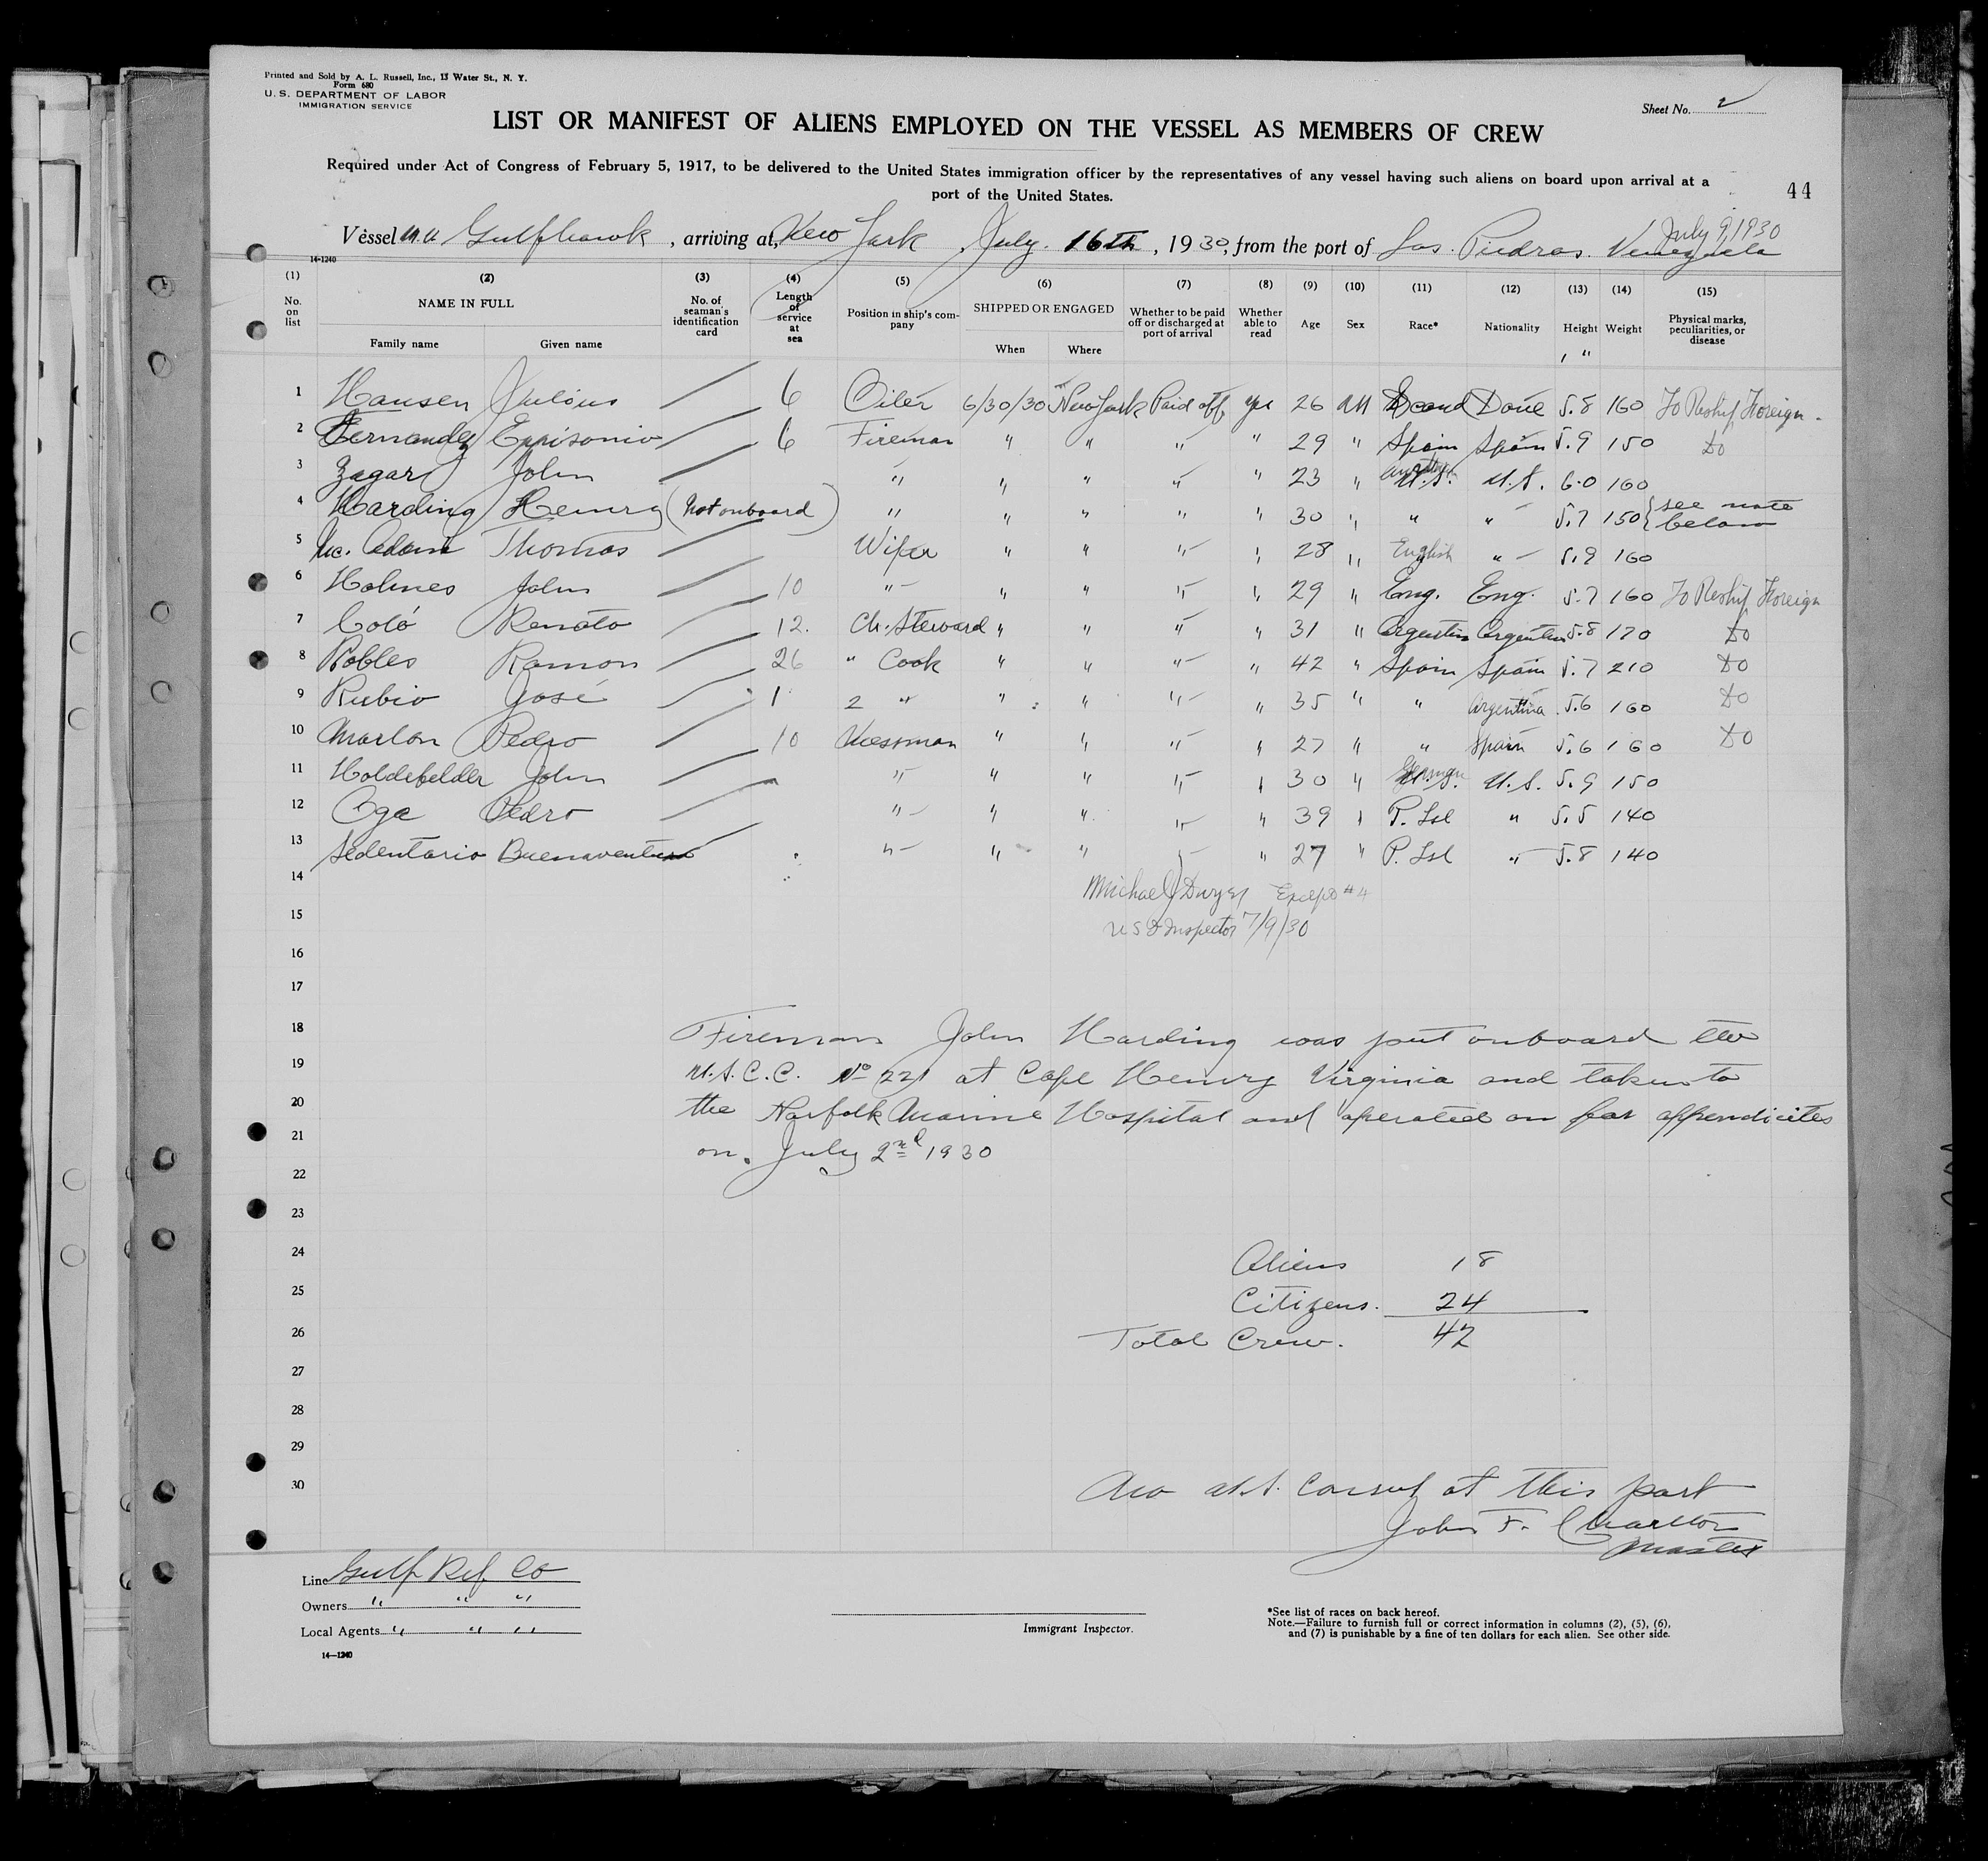 Printed and Sold by A. L. Russell, Inc., 13 Water St., N. Y.
Form 680
U. S. DEPARTMENT OF LABOR
IMMIGRATION SERVICE
Sheet No. 2
LIST OR MANIFEST OF ALIENS EMPLOYED ON THE VESSEL AS MEMBERS OF CREW
Required under Act of Congress of February 5, 1917, to be delivered to the United States immigration officer by the representatives of any vessel having such aliens on board upon arrival at a
port of the United States.
44
July 9 1930
Vessel Gulfhawk, arriving at New York, July 16th, 1930, from the port of Las Piedras. Venezuela
14-1240
(1) (2) (3) (4) (5) (6) (7) (8) (9) (10) (11) (12) (13) (14) (15)
No. on list NAME IN FULL No. of seaman's identification card Length of service at sea Position in ship's company SHIPPED OR ENGAGED Whether to be paid off or discharged at port of arrival Whether able to read Age Sex Race* Nationality Height Weight Physical marks, peculiarities, or disease
Family name Given name When Where
' "
1 Hansen Julius 6 Oiler 6/30/30 New York Paid off yes 26 M Scand Dane 5.8 160 To Reship Foreign
2 Fernandez Eppisonio 6 Fireman " " " " 29 " Spain Spain 5.9 150 Do
3 Zagar John " " " " " 23 " U.S. U.S. 6.0 160
4 Harding Henry (Not onboard) " " " " " 30 " " " 5.7 150 {see note below
5 Mc. Adam Thomas Wiper " " " " 28 " English " 5.9 160
6 Holmes John 10 " " " " " 29 " Eng. Eng. 5.7 160 To Reship Foreign
7 Coló Renato 12. Ch. Steward " " " " 31 " Argentin Argentin 5.8 170 Do
8 Robles Ramon 26 " Cook " " " " 42 " Spain Spain 5.7 210 Do
9 Rubio José 1 2 " " " " " 35 " " Argentina 5.6 160 Do
10 Marlon Pedro 10 Messman " " " " 27 " " Spain 5.6 160 Do
11 Holdefelder John " " " " " 30 " German U.S. 5.9 150
12 Oga Pedro " " " " " 39 " P. Isl " 5.5 140
13 Sedentario Buenaventura " " " " " 27 " P. Isl " 5.8 140
14 Michael J Dwyer Except #4
15 U S I Inspector 7/9/30
16
17
18 Fireman John Harding was put onboard the
19 U.S.C.C. No 221 at Cape Henry Virginia and taken to
20 the Norfolk Marine Hospital and operated on for appendicites
21 on July 2nd 1930
22
23
24 Aliens 18
25 Citizens. 24
26 Total Crew. 42
27
28
29
30 No U.S. Consul at this port
John F. Charlton
Master
Line Gulf Ref Co
Owners " " "
Local Agents " " "
14—1240
Immigrant Inspector.
*See list of races on back hereof.
Note.—Failure to furnish full or correct information in columns (2), (5), (6),
and (7) is punishable by a fine of ten dollars for each alien. See other side.